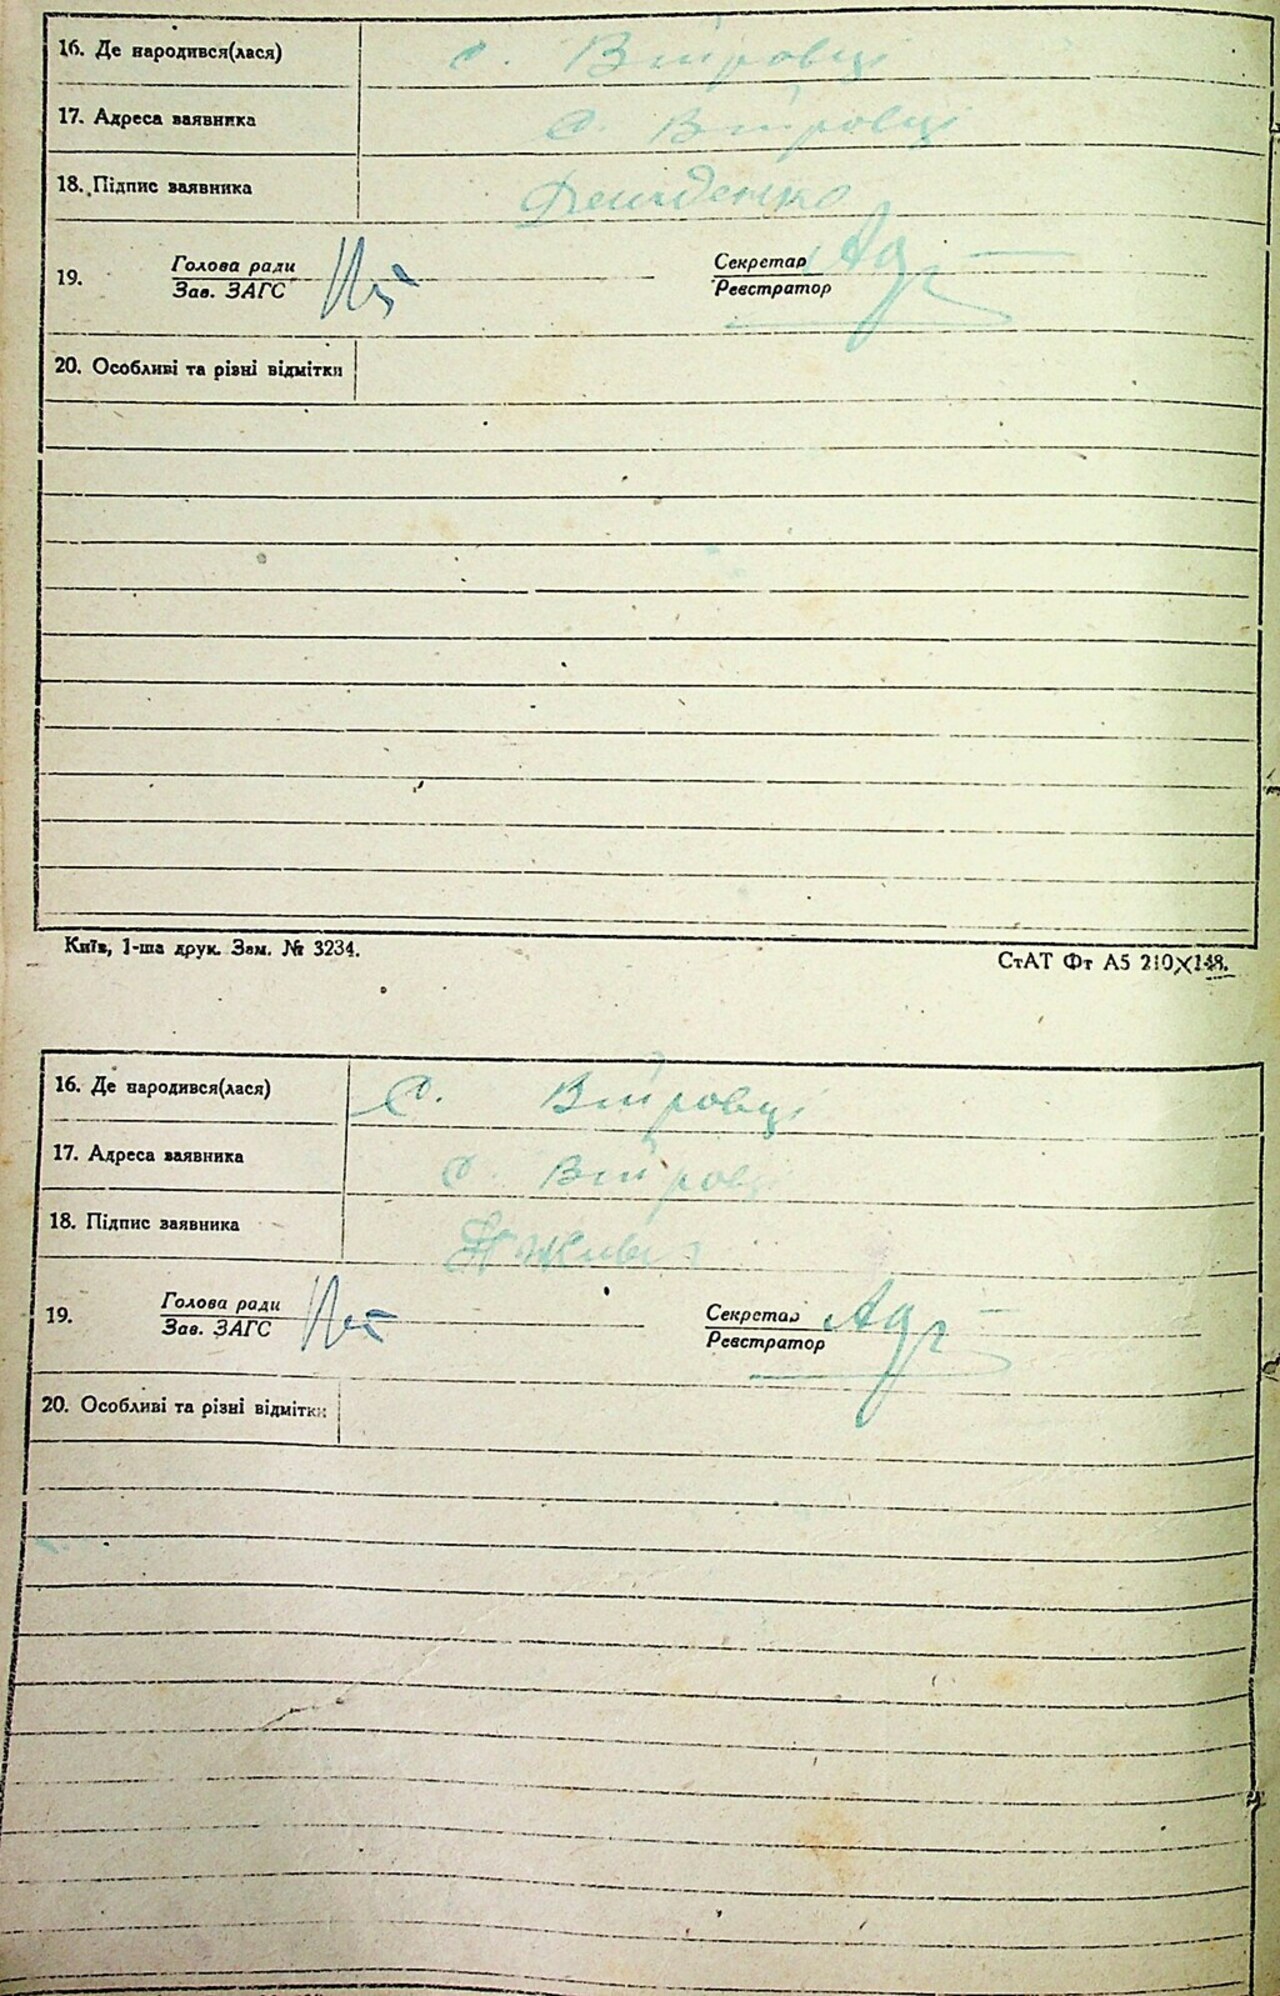 16. Де народився(лася) с. Вітровці
17. Адреса заявника с. Вітровці
18. Підпис заявника Демиденко
19. Голова ради
Зав. ЗАГС
Секретар
Реєстратор
20. Особливі та різні відмітки
Київ, 1-ша друк. Зам. № 3234.
СтАТ Фт А5 210×148.
16. Де народився(лася) с. Вітровці
17. Адреса заявника с. Вітровці
18. Підпис заявника
19. Голова ради
Зав. ЗАГС
Секретар
Реєстратор
20. Особливі та різні відмітки